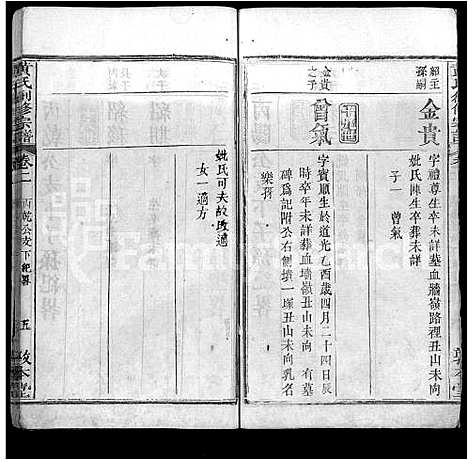 紹主
孫嗣
金貴
字禮尊生卒未詳葬血牆嶺路裡丑山未向
妣氏陳生卒葬未詳
子一 曾氣
金貴
之子
曾氣
字賓順生於道光乙酉歲四月二十四日辰
時卒年未詳葬血墻嶺丑山未向 有墓
碑爲記附公右側墳一塚丑山未向乳名
樂孬
妣氏可夫故改適
女一適方
黃氏
修宗譜
卷二
丙乾公支下紀畧
五
敦本堂